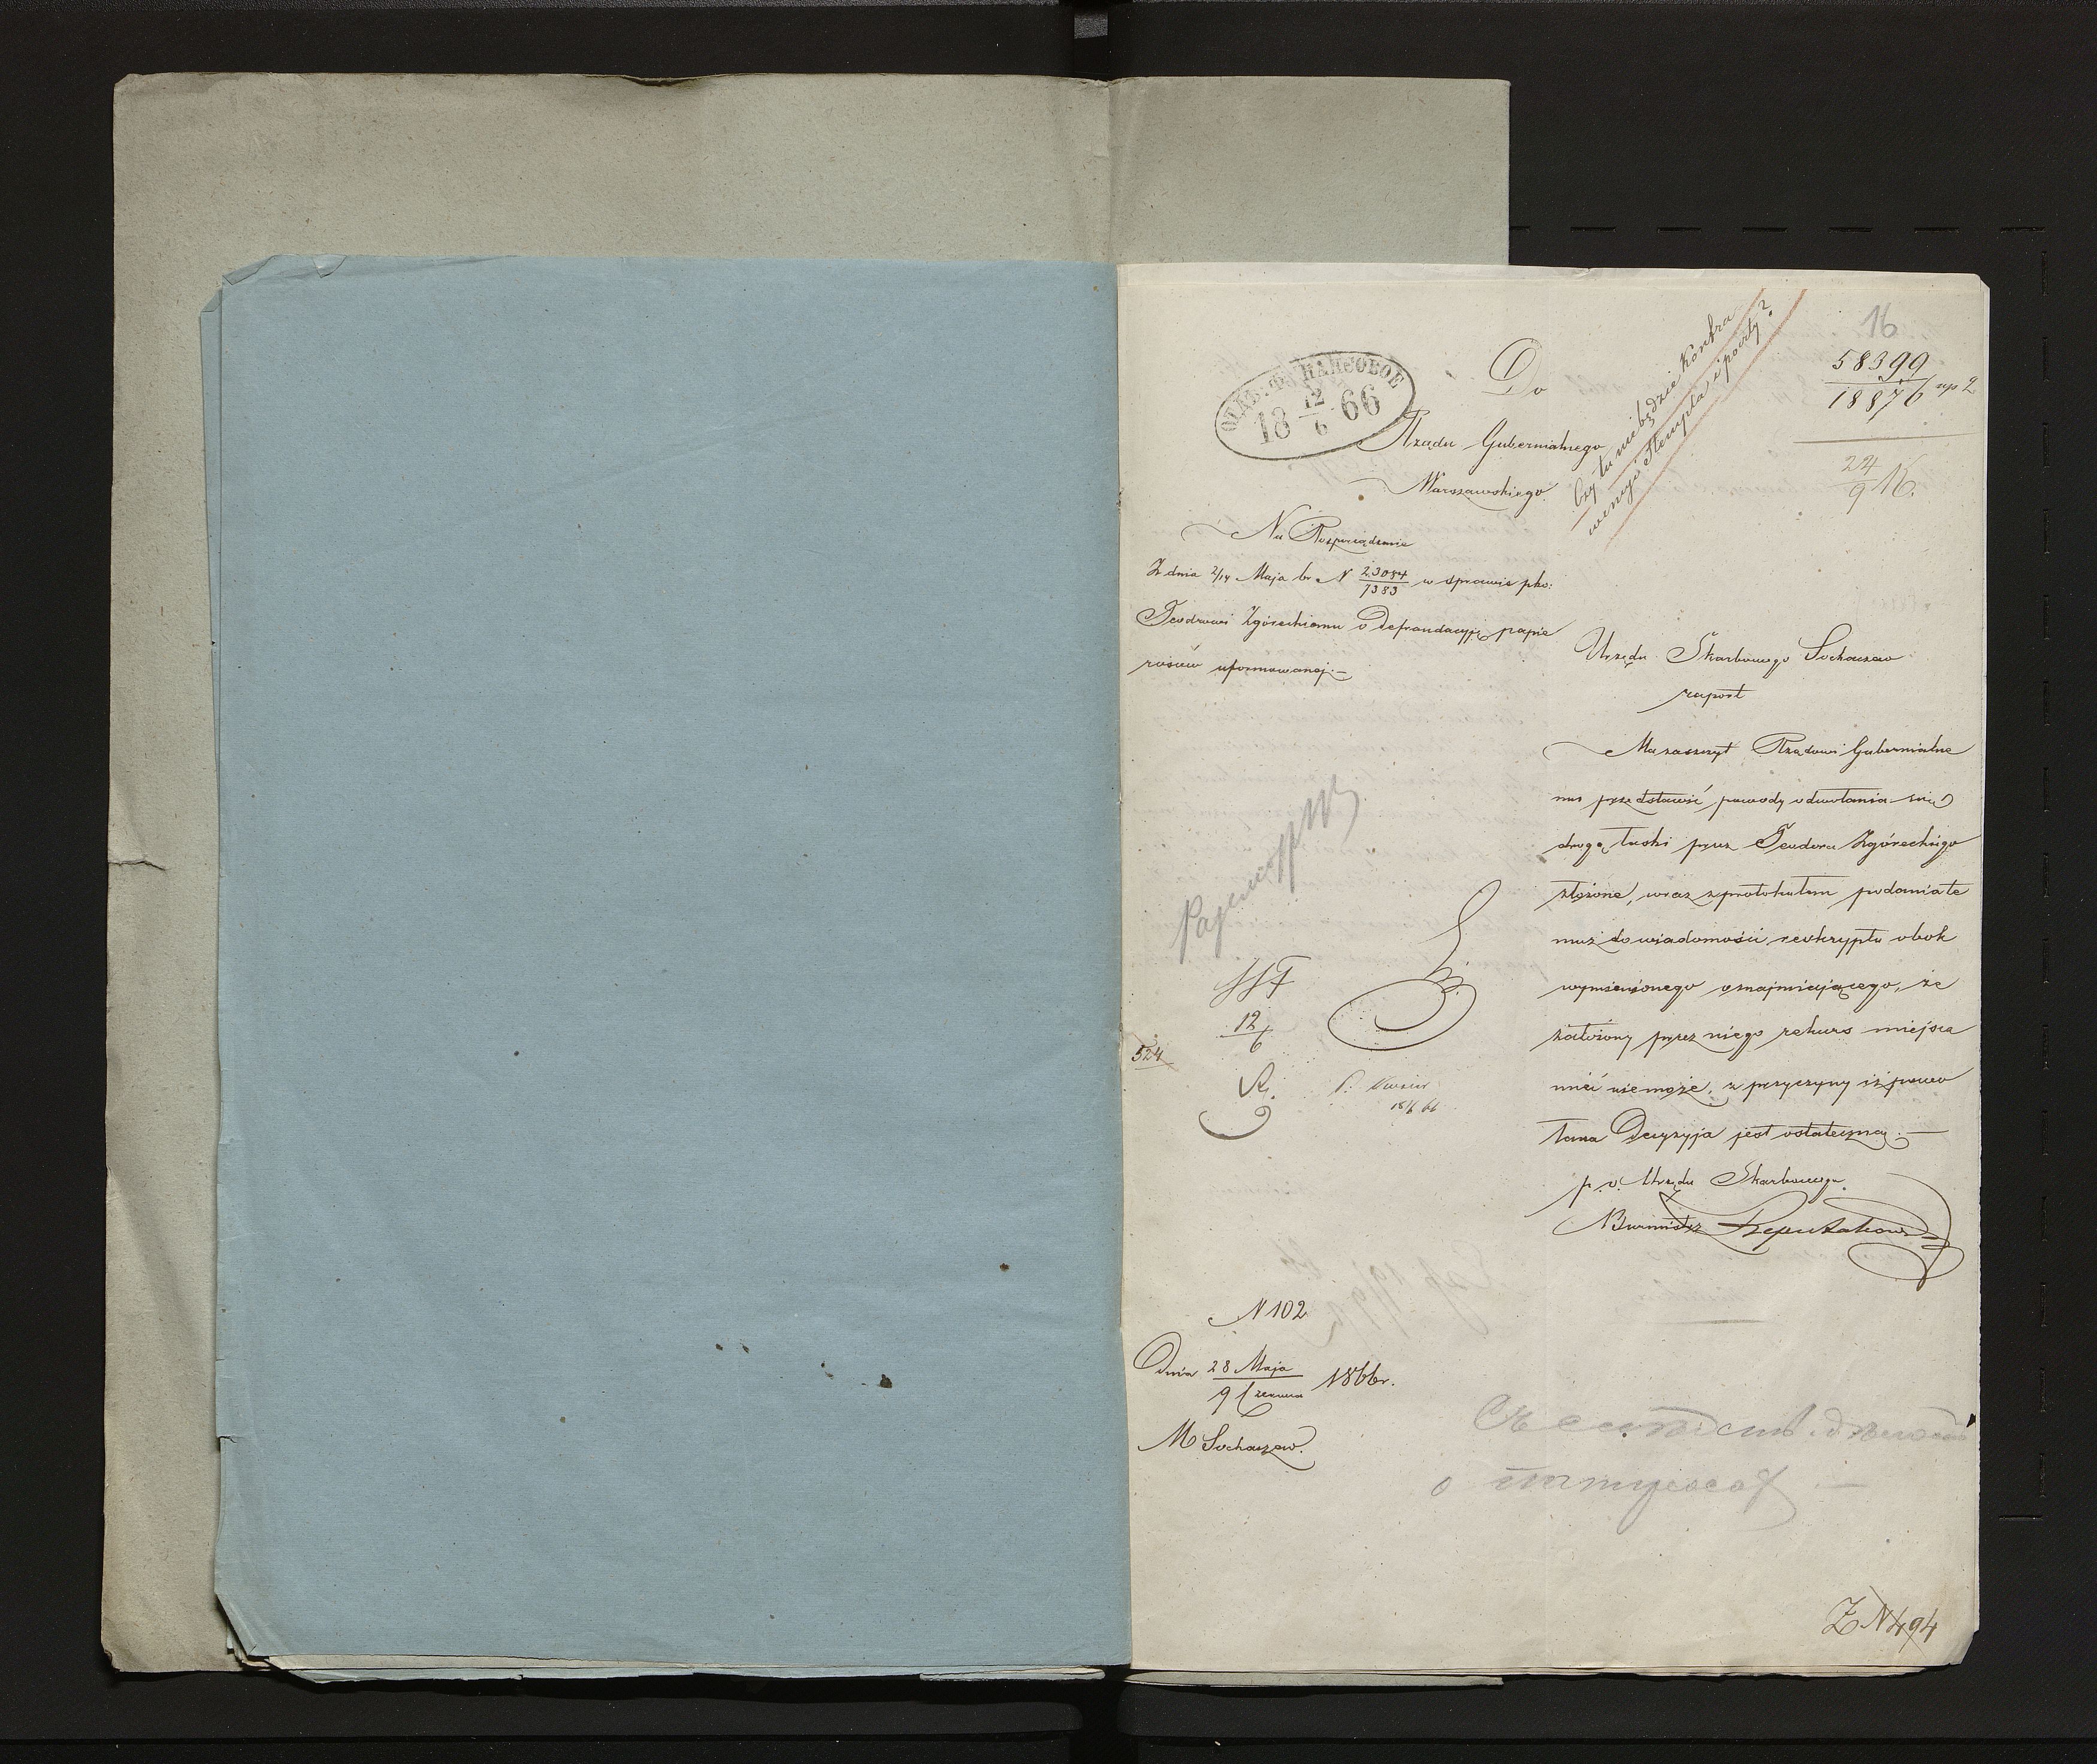 16
58399
18876 np 2
24
9 K.
ОТДѢ: ФИНАНСОВОЕ
18 12/6 66
Do
Rządu Gubernialnego
Warszawskiego.
Czy tu nie będzie kontra
wencyi Stempla i poczty?
Na Rosporządzenie
Z dnia 2/14 Maja br N 23084/7383 w sprawie pko:
Teodorowi Zgóreckiemu o Defraudacyję papie
rosów uformowanej.—
Urzędu Skarbowego Sochaczew
raport
Ma zaszczyt Rządowi Gubernialne
mu przedstawić powody odwołania się
drogą łaski przez Teodora Zgóreckiego
złożone, wraz z protokułem podania te
muż do wiadomości reskryptu obok
wymienionego oznajmiającego, że
założony przez niego rekurs miejsca
mieć nie może, z przyczyny iż powo
łana Decyzyja jest ostateczną.—
p. o. Urzędu Skarbowego
Burmistrz
12/6
524
N 102
Dnia 28 Maja/9 Czerwca 1866r.
M Sochaczew.
Z N 494